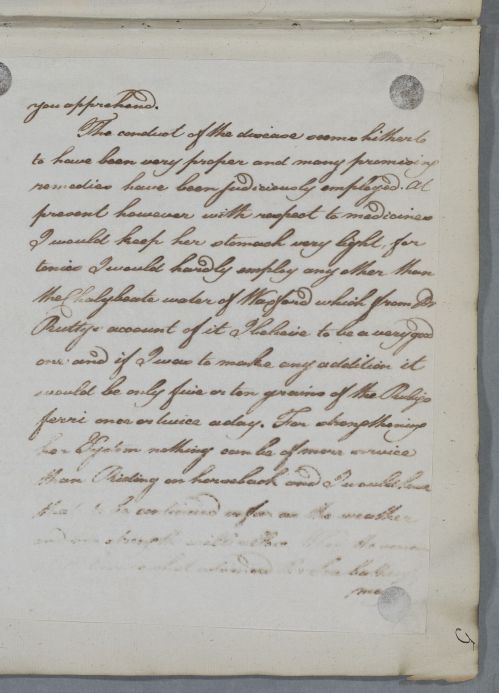 you apprehend.
The conduct of the disease seems hitherto
to have been very proper and many promising
remedies have been judiciously employed. At
present however with respect to medicines
I would keep her stomach very light, for
tonics I would hardly employ any other than
the Chalybeate water of Wexford which from Dr
Rutty's account of it I believe to be a very good
one and if I was to make any addition it
would be only five or ten grains of the Rubigo
ferri once or twice a day. For strengthening
her System nothing can be of more service
than Riding on horseback and I would have
that to be continued as far as the weather
and her strength will allow. When the
somewhat advanced
may
5